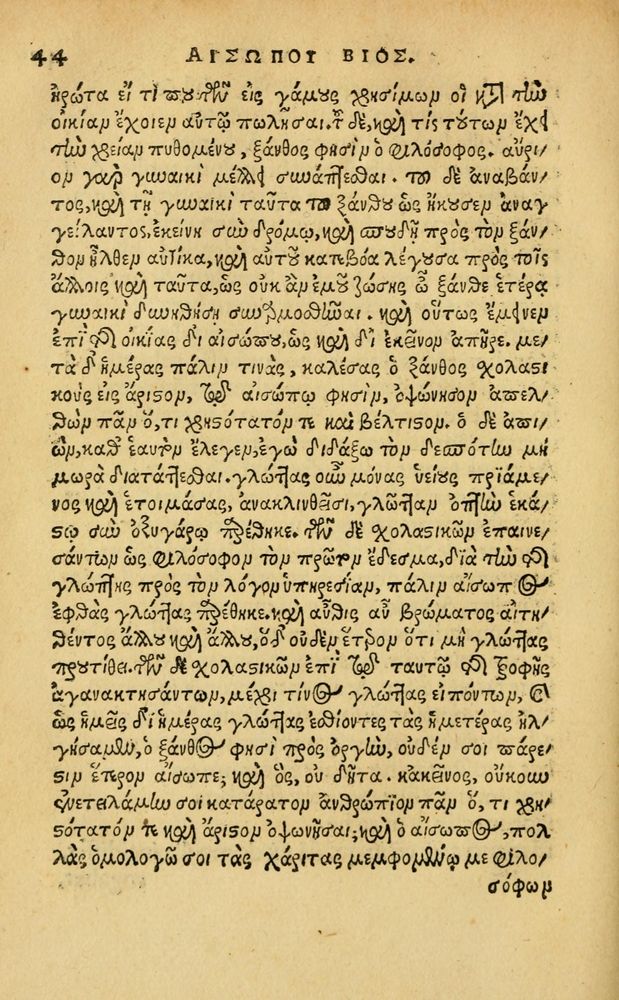 44 ΑΙΣΩΠΟΥ ΒΙΟΣ.
ἠρώτα εἴ τι τούτων εἰς γάμους χρήσιμον οἱ κατὰ τὴν
οἰκίαν ἔχοιεν αὐτῷ πωλῆσαι. τοῦ δὲ, καὶ τίς τούτων ἔχει
τὴν χρείαν πυθομένου, ξάνθος φησὶν ὁ φιλόσοφος. αὔρι/
ον γὰρ γυναικὶ μέλλει συνάπτεσθαι. τοῦ δὲ ἀναβάν/
τος, καὶ τῇ γυναικὶ ταῦτα τοῦ ξάνθου ὡς ἤκουσεν ἀναγ
γείλαντος, ἐκείνη σὺν δρόμῳ, καὶ σπουδῇ πρὸς τὸν ξάν/
θον ἦλθεν αὐτίκα, καὶ αὐτοῦ κατεβόα λέγουσα πρὸς τοῖς
ἄλλοις καὶ ταῦτα, ὡς οὐκ ἂν ἐμοῦ ζώσης ὦ ξάνθε ἑτέρᾳ
γυναικὶ δυνηθείης συναρμοσθῆναι. καὶ οὕτως ἔμεινεν
ἐπὶ τῆς οἰκίας δι αἰσώπου, ὡς καὶ δι ἐκεῖνον ἀπῆρε. με/
τὰ δ ἡμέρας πάλιν τινὰς, καλέσας ὁ ξάνθος σχολαστι
κοὺς εἰς ἄριστον, τῷ αἰσώπῳ φησὶν, ὀψώνησον ἀπελ/
θὼν πᾶν ὅ, τι χρηστότατόν τε καὶ βέλτιστον. ὁ δὲ ἀπι/
ὼν, καθ ἑαυτὸν ἔλεγεν, ἐγὼ διδάξω τὸν δεσπότην μὴ
μωρὰ διατάττεσθαι. γλώττας οὖν μόνας ὑείους πριάμε/
νος καὶ ἑτοιμάσας, ἀνακλινθεῖσι, γλῶτταν ὀπτὴν ἑκά/
στῳ σὺν ὀξυγάρῳ παρέθηκε. τῶν δὲ σχολαστικῶν ἐπαινε/
σάντων ὡς φιλόσοφον τὸν πρῶτον ἔδεσμα, διὰ τὴν τῆς
γλώττης πρὸς τὸν λόγον ὑπηρεσίαν, πάλιν αἴσωπος
ἑφθὰς γλώττας παρέθηκε. καὶ αὖθις αὖ βρώματος αἰτη/
θέντος ἄλλου καὶ ἄλλου, ὁ δ οὐδὲν ἕτερον ὅτι μὴ γλώττας
προυτίθει. τῶν δὲ σχολαστικῶν ἐπὶ τῷ ταυτῷ τῆς τροφῆς
ἀγανακτησάντων, μέχρι τίνος γλώττας εἰπόντων, καὶ
ὡς ἡμεῖς δι ἡμέρας γλώττας ἐσθίοντες τὰς ἡμετέρας ἠλ/
γήσαμεν, ὁ ξάνθος φησὶ πρὸς ὀργὴν, οὐδέν σοι πάρε/
στιν ἕτερον αἴσωπε; καὶ ὃς, οὐ δῆτα. κἀκεῖνος, οὔκουν
ἐνετειλάμην σοι κατάρατον ἀνθρώπιον πᾶν ὅ, τι χρη/
στότατόν τε καὶ ἄριστον ὀψωνῆσαι; καὶ ὁ αἴσωπος, πολ
λὰς ὁμολογῶ σοι τὰς χάριτας μεμφομένῳ με φιλο/
σόφων